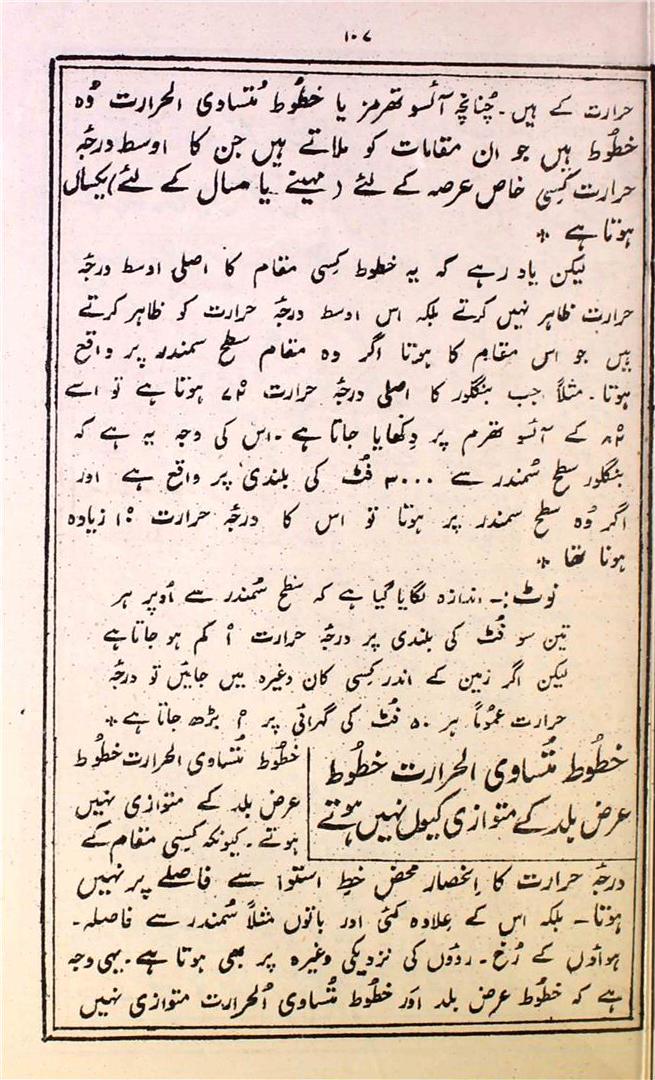 ۱۰۷
حرارت کے ہیں۔ چُنانچہ آئسو تھرمز یا خطُوط مُتساوی الحرارت وُہ
خطُوط ہیں جو ان مقامات کو ملاتے ہیں جن کا اوسط درجۂ
حرارت کِسی خاص عرصہ کے لئے (مہینے یا سال کے لئے) یکساں
ہوتا ہے ٭
لیکن یاد رہے کہ یہ خطوط کِسی مقام کا اصلی اوسط درجۂ
حرارت ظاہر نہیں کرتے بلکہ اس اوسط درجۂ حرارت کو ظاہر کرتے
ہیں جو اس مقام کا ہوتا اگر وہ مقام سطح سمندر پر واقع
ہوتا۔ مثلاً جب بنگلور کا اصلی درجۂ حرارت ۷۲° ہوتا ہے تو اسے
۸۲° کے آئسو تھرم پر دِکھایا جاتا ہے۔ اس کی وجہ یہ ہے کہ
بنگلور سطح سُمندر سے ۳۰۰۰ فُٹ کی بلندی پر واقع ہے اور
اگر وُہ سطح سمندر پر ہوتا تو اس کا درجۂ حرارت ۱۰° زیادہ
ہونا تھا ٭
نوٹ:۔ اندازہ لگایا گیا ہے کہ سطح سُمندر سے اُوپر ہر
تین سو فُٹ کی بلندی پر درجۂ حرارت ۱° کم ہو جاتا ہے
لیکن اگر زمین کے اندر کِسی کان وغیرہ میں جائیں تو درجۂ
حرارت عمُوماً ہر ۵۰ فُٹ کی گہرائی پر ۱° بڑھ جاتا ہے ٭
خطُوط مُتساوی الحرارت خطُوط
عرض بلد کے متوازی کیوں نہیں ہوتے
خطُوط مُتساوی الحرارت خطُوط
عرض بلد کے متوازی نہیں
ہوتے۔ کیونکہ کسی مقام کے
درجۂ حرارت کا اِنحصار محض خطِ استوا سے فاصلے پر نہیں
ہوتا۔ بلکہ اس کے عِلاوہ کئی اور باتوں مثلاً سُمندر سے فاصلہ۔
ہواؤں کے رُخ۔ روؤں کی نزدیکی وغیرہ پر بھی ہوتا ہے۔ یہی وجہ
ہے کہ خطُوط عرض بلد اور خطُوط مُتساوی الحرارت متوازی نہیں